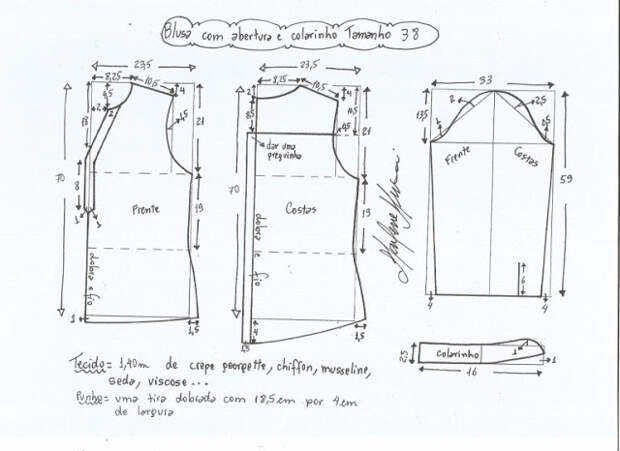 Blusa com abertura e colarinho Tamanho 38
23,5
8,25
10,5
4
4,5
2
2
1,5
18
21
70
8
3
3
Frente
19
dobra e fio
1
1,5
23,5
8,25
10,5
4
2
8,5
16,5
0,5
21
dar uma preguinha
70
Costas
19
dobra e fio
4
1,5
1,5
33
13,5
2
2,5
1
0,5
Frente
Costas
59
6
4
4
colarinho
2,5
1
1
16
Tecido = 1,40m de crepe georgette, chiffon, musseline,
seda, viscose ...
Punho = uma tira dobrada com 18,5 cm por 4 cm
de largura